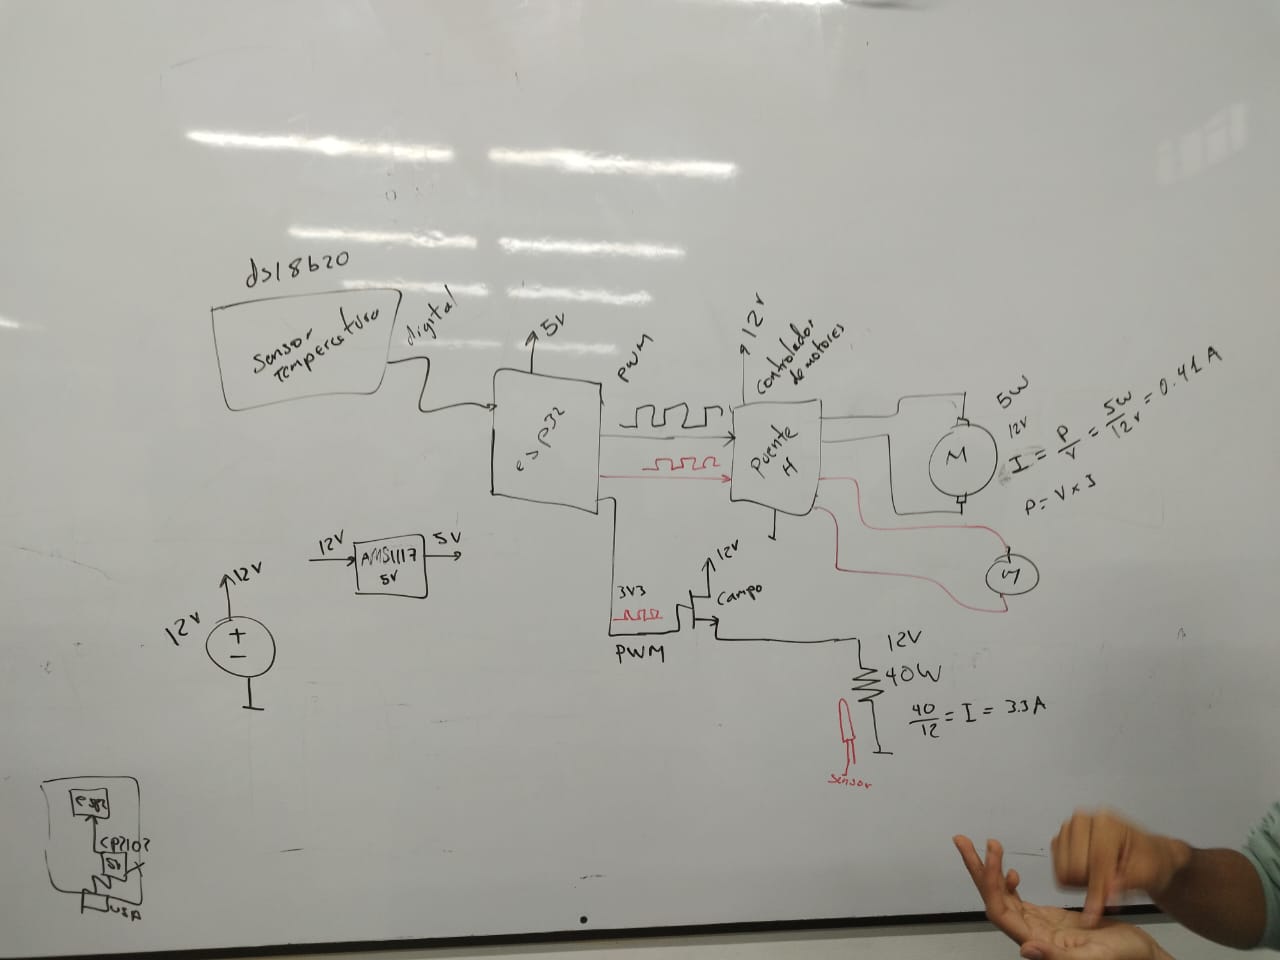 ds18b20
Sensor
Temperatura
digital
5V
esp32
PWM
12V
controlador
de motores
Puente
H
M
5W
12V
I = P/V = 5W/12V = 0.41 A
P = V x I
M
12V
AMS1117
5V
5V
12V
12V
+
-
3V3
PWM
12V
Campo
12V
40W
40/12 = I = 3.3 A
sensor
CP2102